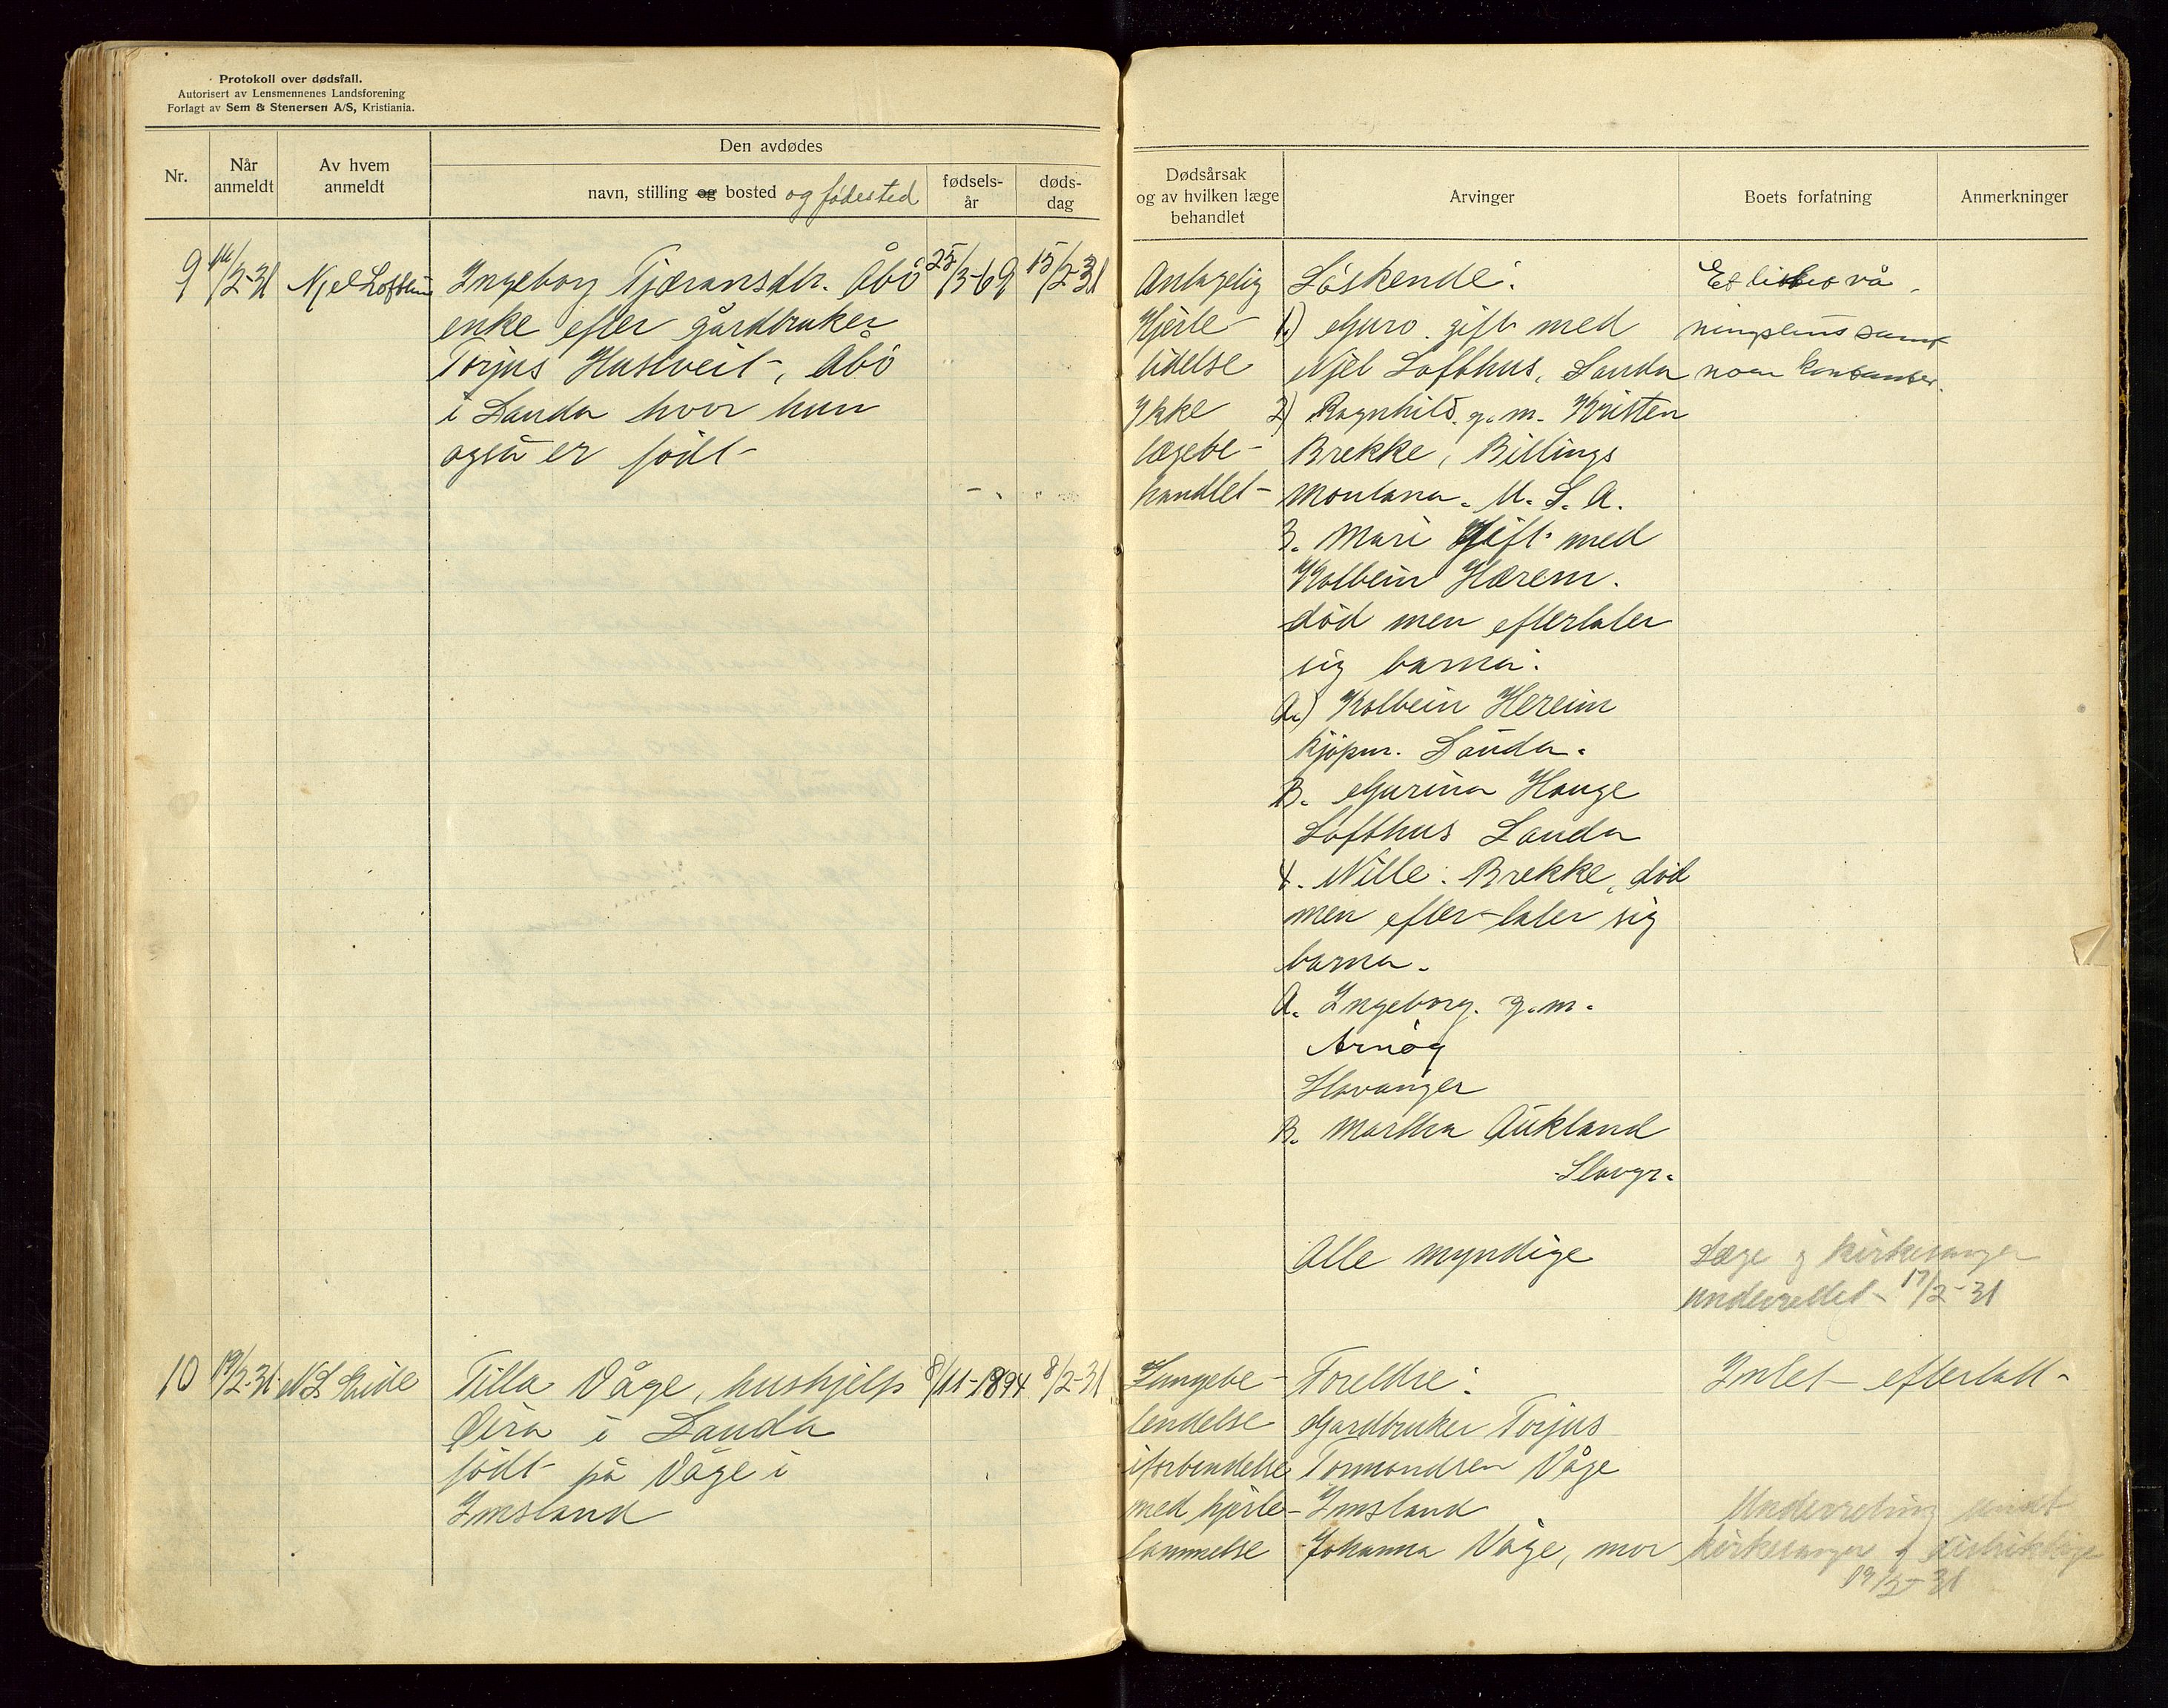 Protokoll over dødsfall.
Autorisert av Lensmennenes Landsforening
Forlagt av Sem & Stenersen A/S, Kristiania.
Nr.
Når anmeldt
Av hvem anmeldt
Den avdødes
navn, stilling og bosted og fødested
fødsels-
år
døds-
dag
Dødsårsak
og av hvilken læge
behandlet
Arvinger
Boets forfatning
Anmerkninger
9 16/2-31 Njel Lofthus
Ingeborg Tjæransdtr. Åbö 25/3-69 15/2-31
enke efter gårdbruker
Torjus Hustveit, Åbö
i Sauda hvor hun
også er födt
Antagelig
Hjerte
lidelse
Ikke
lægebe-
handlet
Söskende:
1.) Guro gift med
Njel Lofthus, Sauda
2) Ragnhild. g.m. Kristen
Brekke, Billings
Montana. U.S.A.
3. Mari Gift med
Kolbein Hærem.
död men efterlater
sig barna:
A.) Kolbein Hereim
kjöpm. Sauda.
B. Gurina Hauge
Lofthus Sauda
4. Nille Brekke, död
men efterlater sig
barna.
A. Ingeborg. g.m.
Arnög
Stavanger
B. Martha Aukland
Stavgr.
Alle myndige
Et litet vå
ningshus samt
noen kontanter.
Læge og kirkesanger
underrettet 17/2-31
10 19/2-31 N L Eide
Tilla Våge, hushjelp 8/11-1894 8/2-31
Øira i Sauda
födt på Våge i
Imsland
Lungebe-
tendelse
iforbindelse
med hjerte-
lammelse
Foreldre:
Gardbruker Torjus
Tormondsen Våge
Imsland
Johanna Våge, mor
Intet efterlatt
Underretning sendt
kirkesanger og distriktslæge
19/2-31